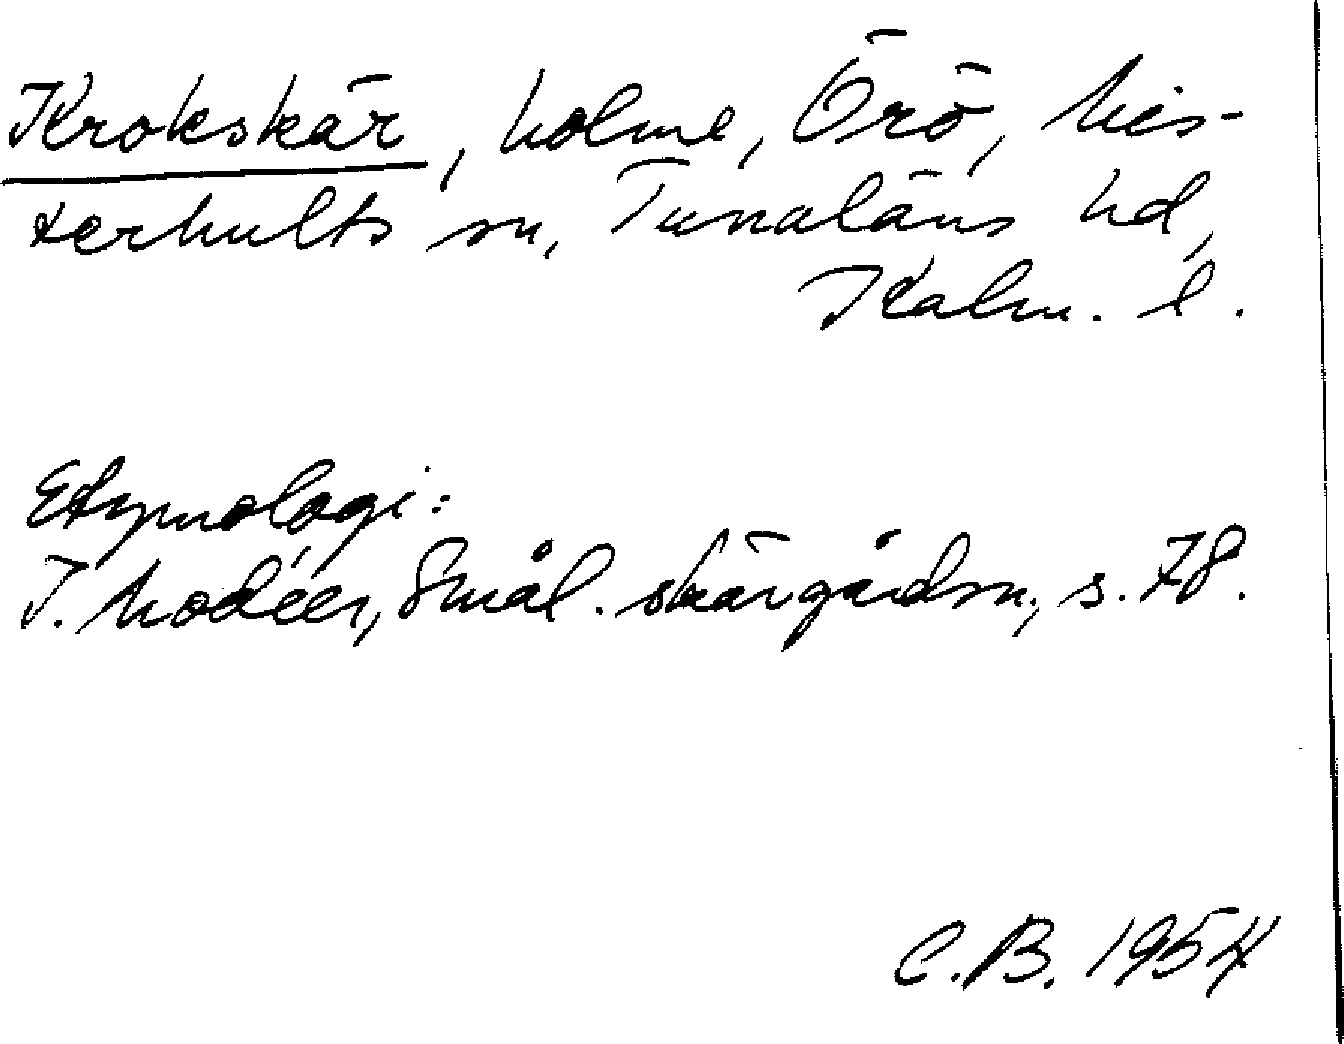 Krokskär, holme, Örö, Mis-
terhults sn, Tunaläns hd,
Kalm. l.
Etymologi:
I. Modéer, Smål. skärgårdsn., s. 78.
C.B. 1954